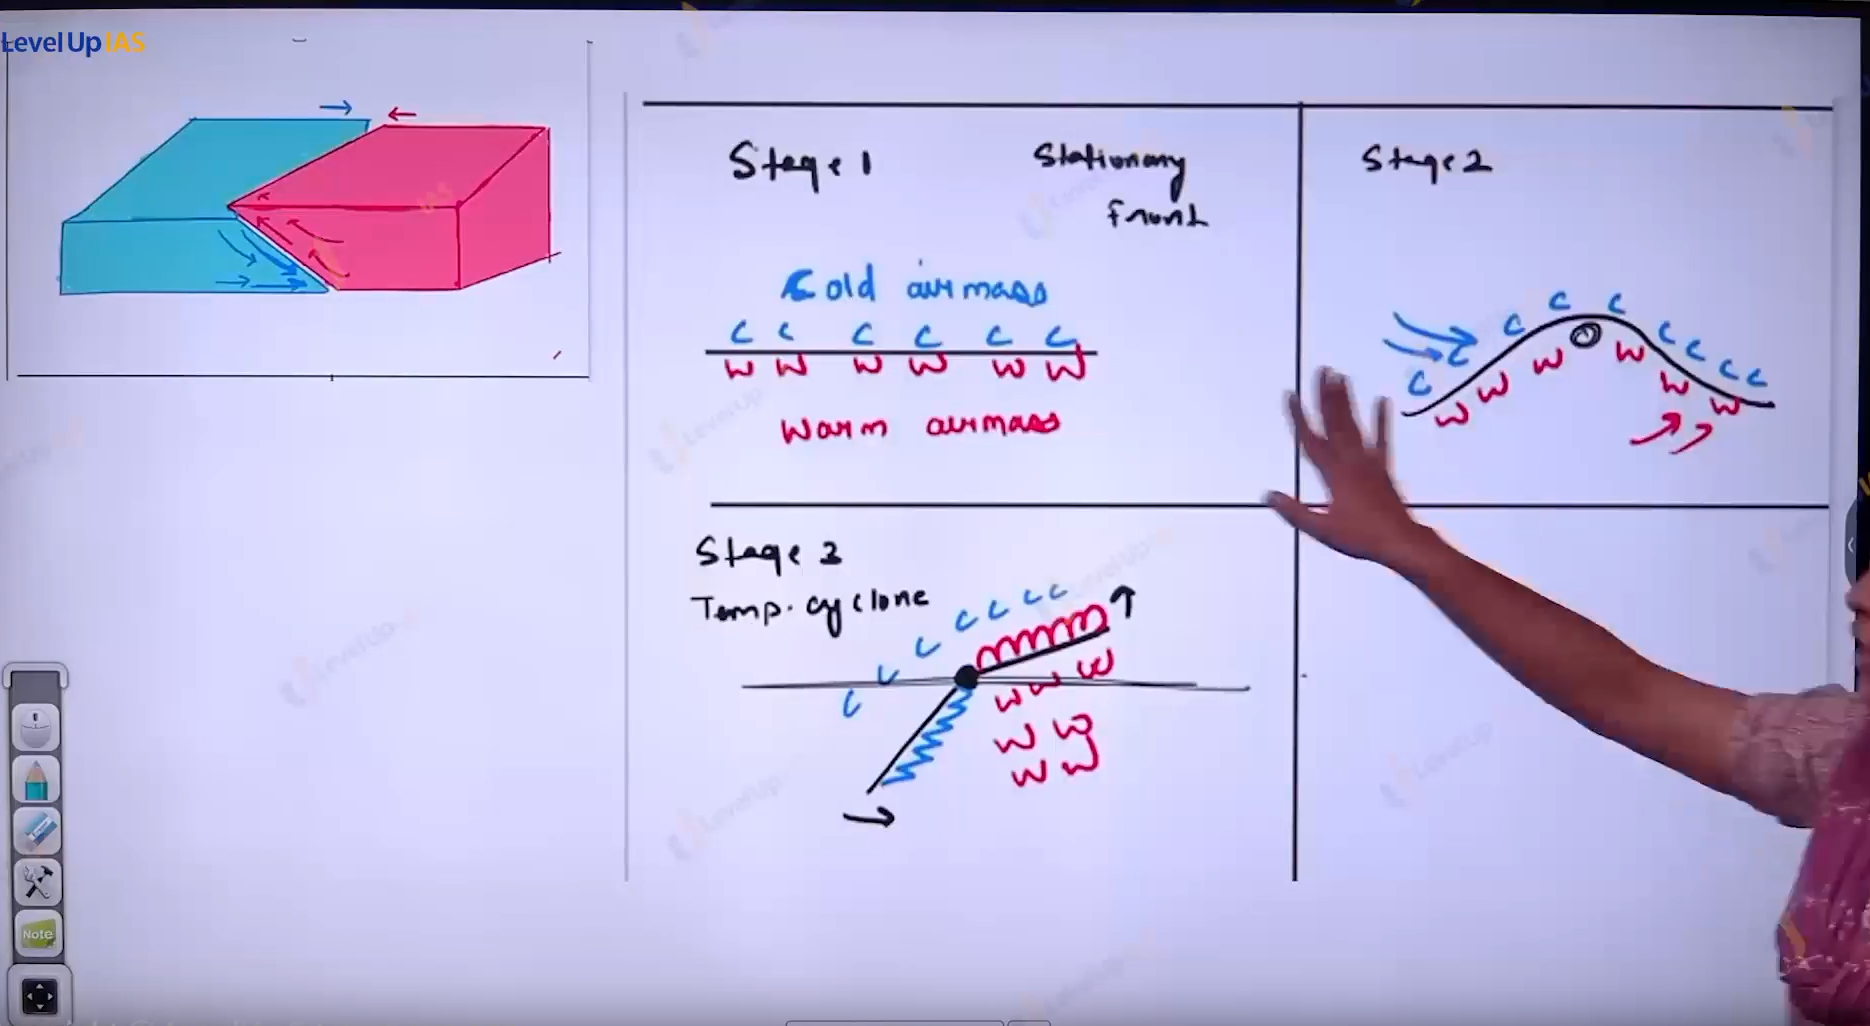 LevelUp IAS
Stage 1
Stationary
front
Cold airmass
C C C C C C
W W W W W W
Warm airmass
Stage 2
C C C C C C C C C
W W W W W W
Stage 3
Temp. cyclone
C C C C C C C
W W W
W W
W W
Note